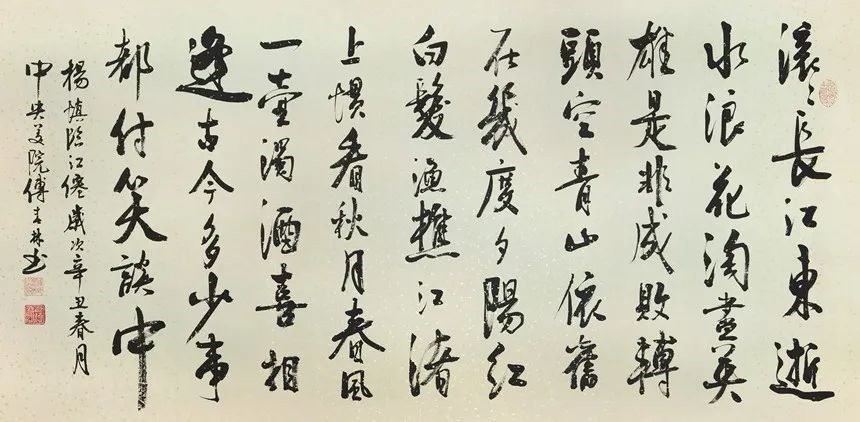 滾〻長江東逝
水浪花淘盡英
雄是非成敗轉
頭空青山依舊
在幾度夕陽紅
白髮漁樵江渚
上慣看秋月春風
一壺濁酒喜相
逢古今多少事
都付笑談中
楊慎臨江僊歲次辛丑春月
中央美院傅吉林书